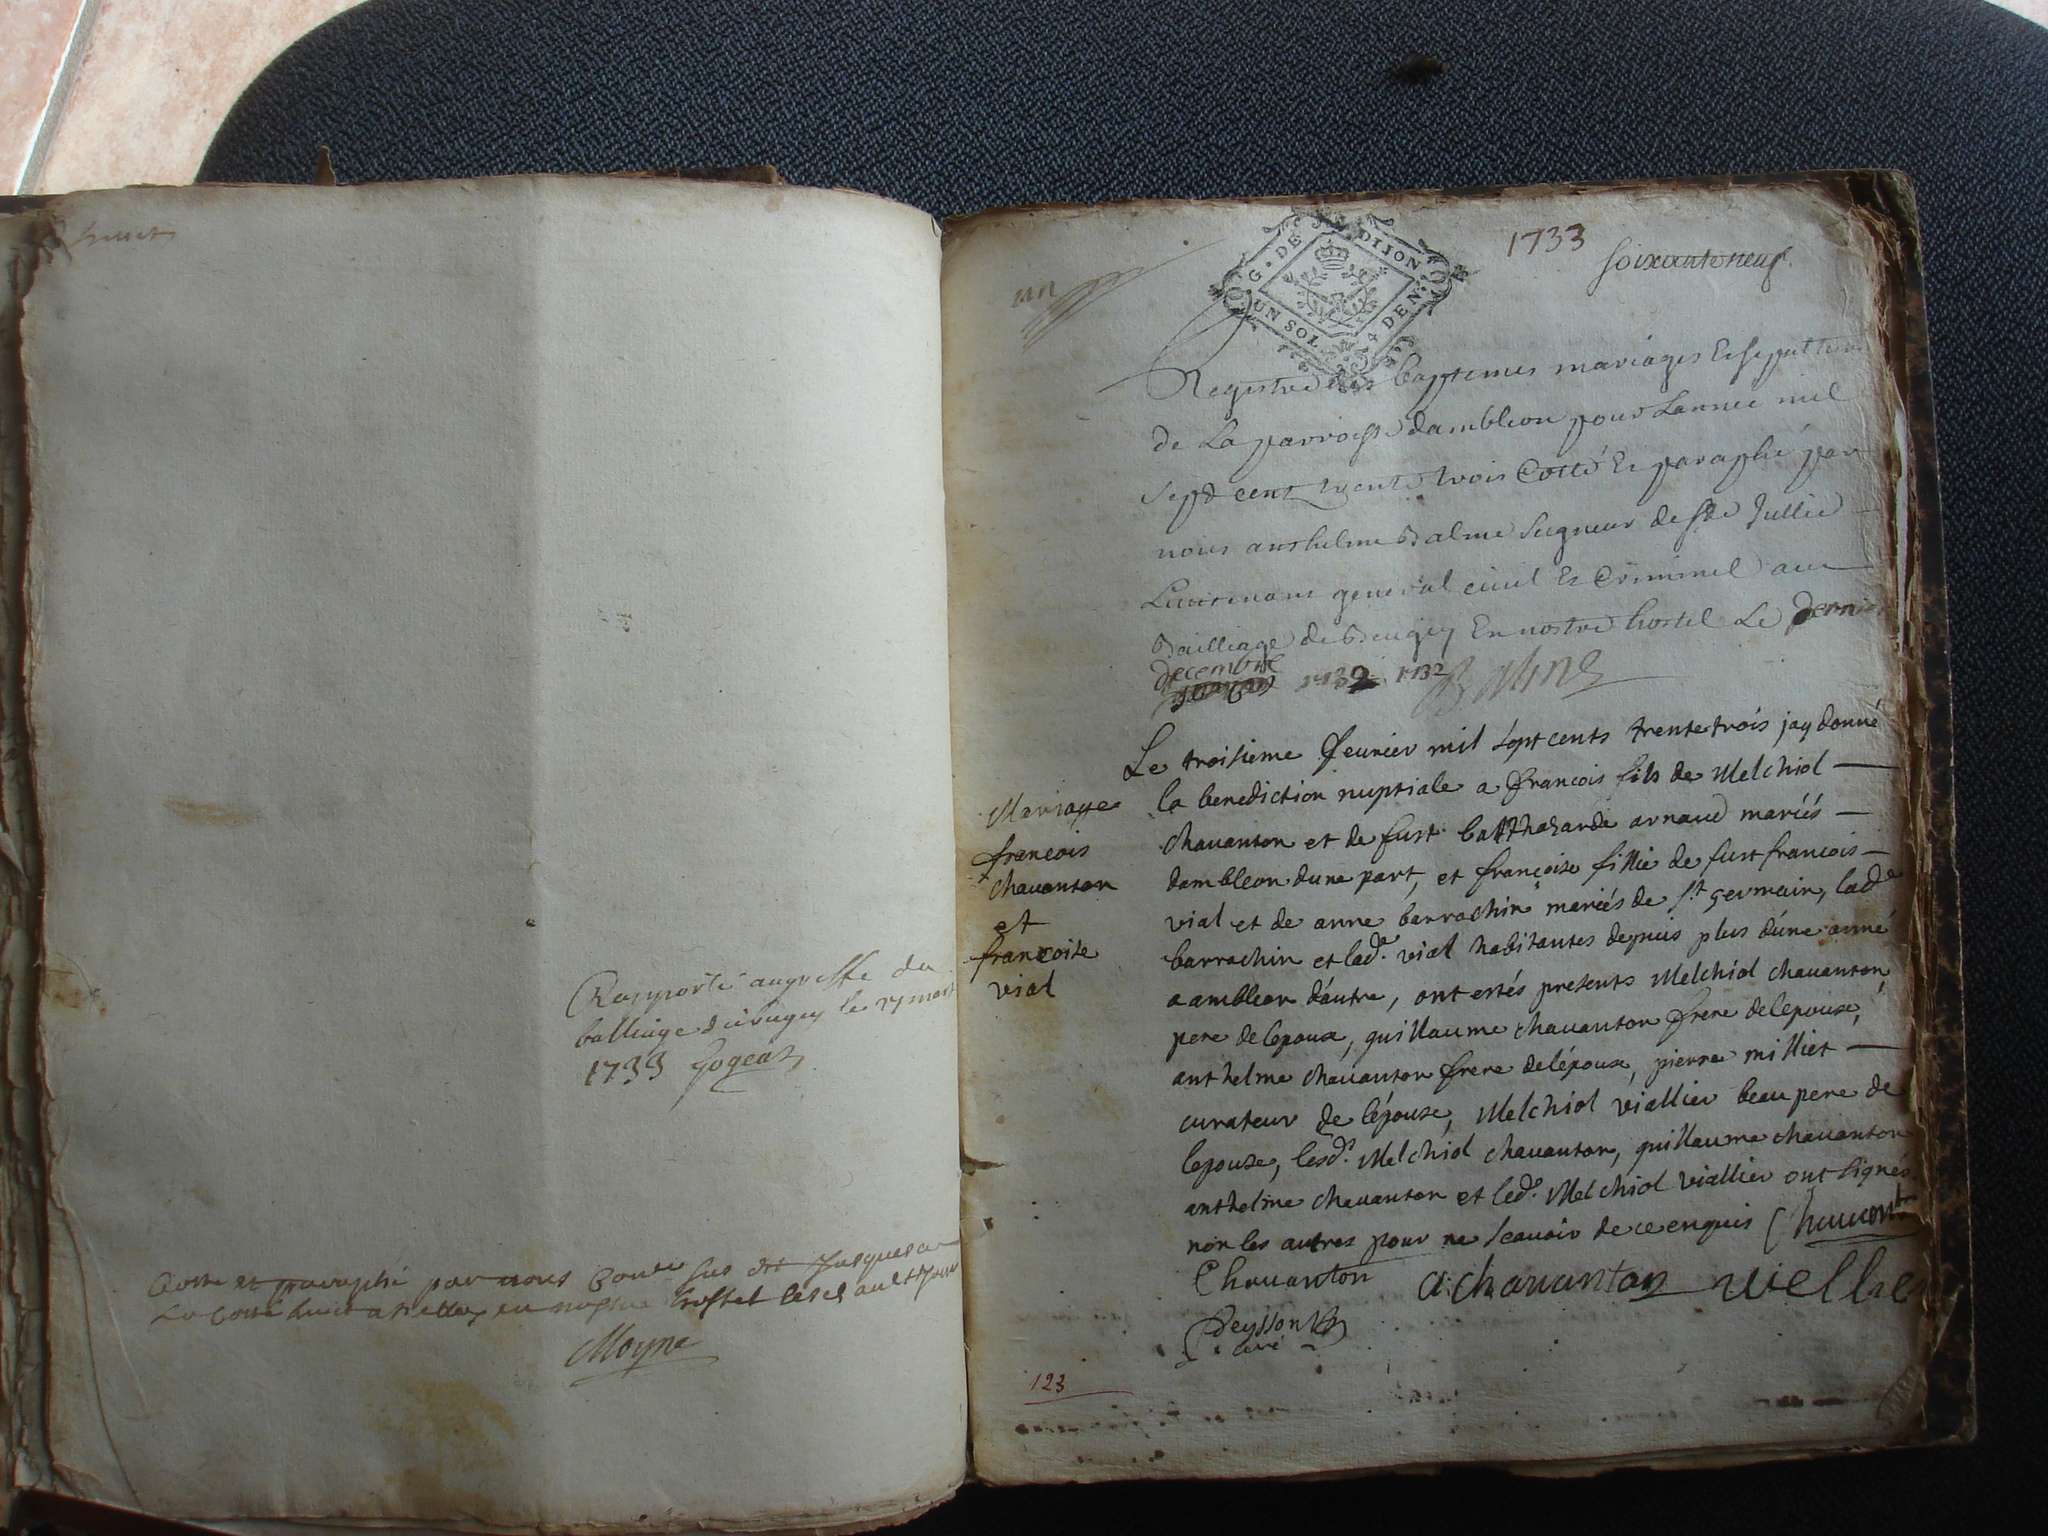 huict
Rapporté au greffe du
balliage de bugey le 27 mars
1733
Cotté et paraphé par nous
Moyne
un
G. DE DIJON
UN SOL 4 DEN.
1733
soixante neuf
Registre des baptemes mariages Et sepulture
de La parroisse dambleon pour Lannee mil
sept cent trente trois Cotté Et paraphé par
nous anthelme Balme Seigneur de Ste Jullie
Lieutenant general civil Et Criminel au
Bailliage de Beugey En nostre hostel Le dernier
decembre
1732 1732 Balme
Le troisieme feurier mil sept cents trente trois jay donné
Mariage
francois
chauanton
et
francoise
vial
la benediction nuptiale a francois fils de Melchiol
chauanton et de fust balthazarde arnaud mariés
dambleon dune part, et françoise fillie de fust francois
vial et de anne barrachin mariés de st germain, lade
barrachin et lade. vial habitantes depuis plus d'une anné
a ambleon d'autre, ont estés presents Melchiol chauanton
pere de lepoux, guillaume chauanton frere de lepouse,
anthelme chauanton frere de lépoux, pierre milliet
curateur de lépouse, Melchiol viallier beau pere de
lepouse, lesds. Melchiol chauanton, guillaume chauanton
anthelme chauanton et leds. Melchiol viallier ont signés
non les autres pour ne scauoir de ce enquis Chauanton
Chauanton a chauanton viellie
Deysson
curé
123